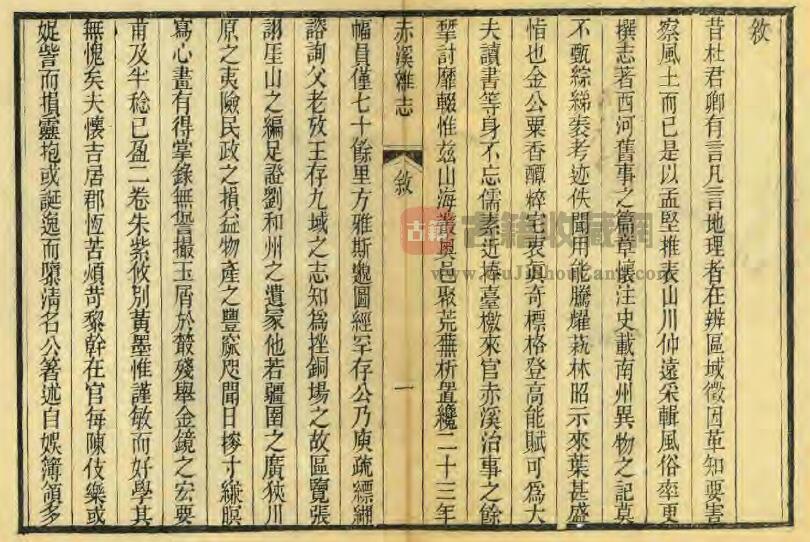 敘
昔杜君卿有言凡言地理者在辨區域徵因革知要害
察風土而已是以孟堅推表山川仲遠采輯風俗率更
撰志著西河舊事之篇章懷注史載南州異物之記莫
不甄綜緜袠考迹佚聞用能騰耀蓺林昭示來葉甚盛
恉也金公粟香醞粹宅衷眞奇標格登高能賦可爲大
夫讀書等身不忘儒素近捧臺檄來官赤溪治事之餘
揅討靡輟惟玆山海叢奧邑聚荒蕪析置纔二十三年
赤溪雜志
敘
一
幅員僅七十餘里方雅斯圖經罕存公乃疏縹緗
諮詢父老攷王存九域之志知爲挫銅場之故區覽張
詡厓山之編足證劉和州之遺冢他若疆圉之廣狹川
原之夷險民政之損益物產之豐窳咫聞日摉寸縑瞑
寫心畫有得掌錄無訾撮玉屑於叢殘舉金鏡之宏要
甫及半稔已盈二卷朱紫攸別黃墨惟謹敏而好學其
無愧矣夫懷吉居郡恆苦煩苛黎幹在官每陳伎樂或
娖訾而損靈抱或誕逸而隳淸名公箸述自娛簿領多
古籍收藏網
www.GuJiShouCang.com